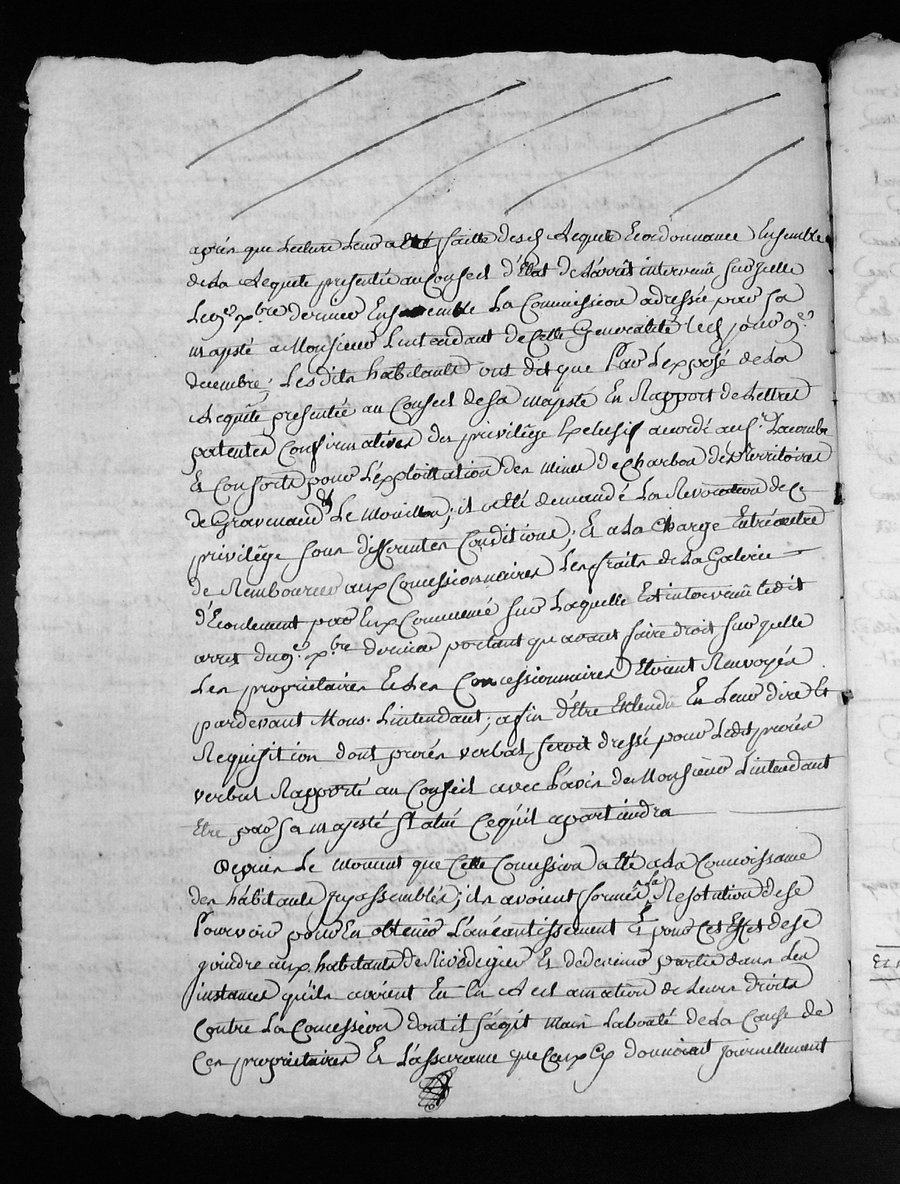 après que Lecture Leur a été faitte desd Requete Et ordonnance Ensemble
de La Requete presentée au Conseil d'Etat de L'arrêt intervenû sur jcelle
Le 9e xbre dernier Ensemble La Commission adressée par sa
majesté a Monsieur L'intendant de Cette Generalité Led jour 9e
decembre, Lesdits habitants ont dit que Par L'exposé de La
Requête presentée au Conseil de sa majesté En Rapport de Lettres
patentes Confirmatives du privilêge Exclusif accordé au Sr Lacombe
Et Consorts pour L'exploittation des mines de Charbon des territoires
de Gravenand & Le Mouillon; il a été demandé La Revocation de Ce
privilêge sous differentes Conditions, Et a La Charge Entre autre
de Rembourcer aux Concessionnaires Les fraits de La Galerie
d'Ecoulement par Eux Commencé sur Laquelle Est intervenû Ledit
arret du 9e xbre dernier portant qu'avant faire droit sur jcelle
Les proprietaires Et Les Concessionnaires Etoient Renvoyés
pardevant Mons. L'intendant, afin d'Etre Entendû En Leur dire Et
Requisition dont procès verbal seroit dressé pour Ledit procès
verbal Rapporté au Conseil avec L'avis de Monsieur L'intendant
Etre par sa majesté statué Ce qu'il apartiendra
Depuis Le moment que Cette Concession a été a La Connoissance
des habitants jcy assemblés; ils avoient formés la Resolution de se
Pourvoir pour En obtenir L'anéantissement Et pour Cet Effet de se
joindre aux habitants de Rivedegier Et de devenir partie dans Les
instances qu'ils avoient En La Reclamation de Leurs droits
Contre La Concession dont il s'agit mais La bonté de La Cause de
Ces proprietaires Et L'assurance que Ceux Cy donnoient journellement